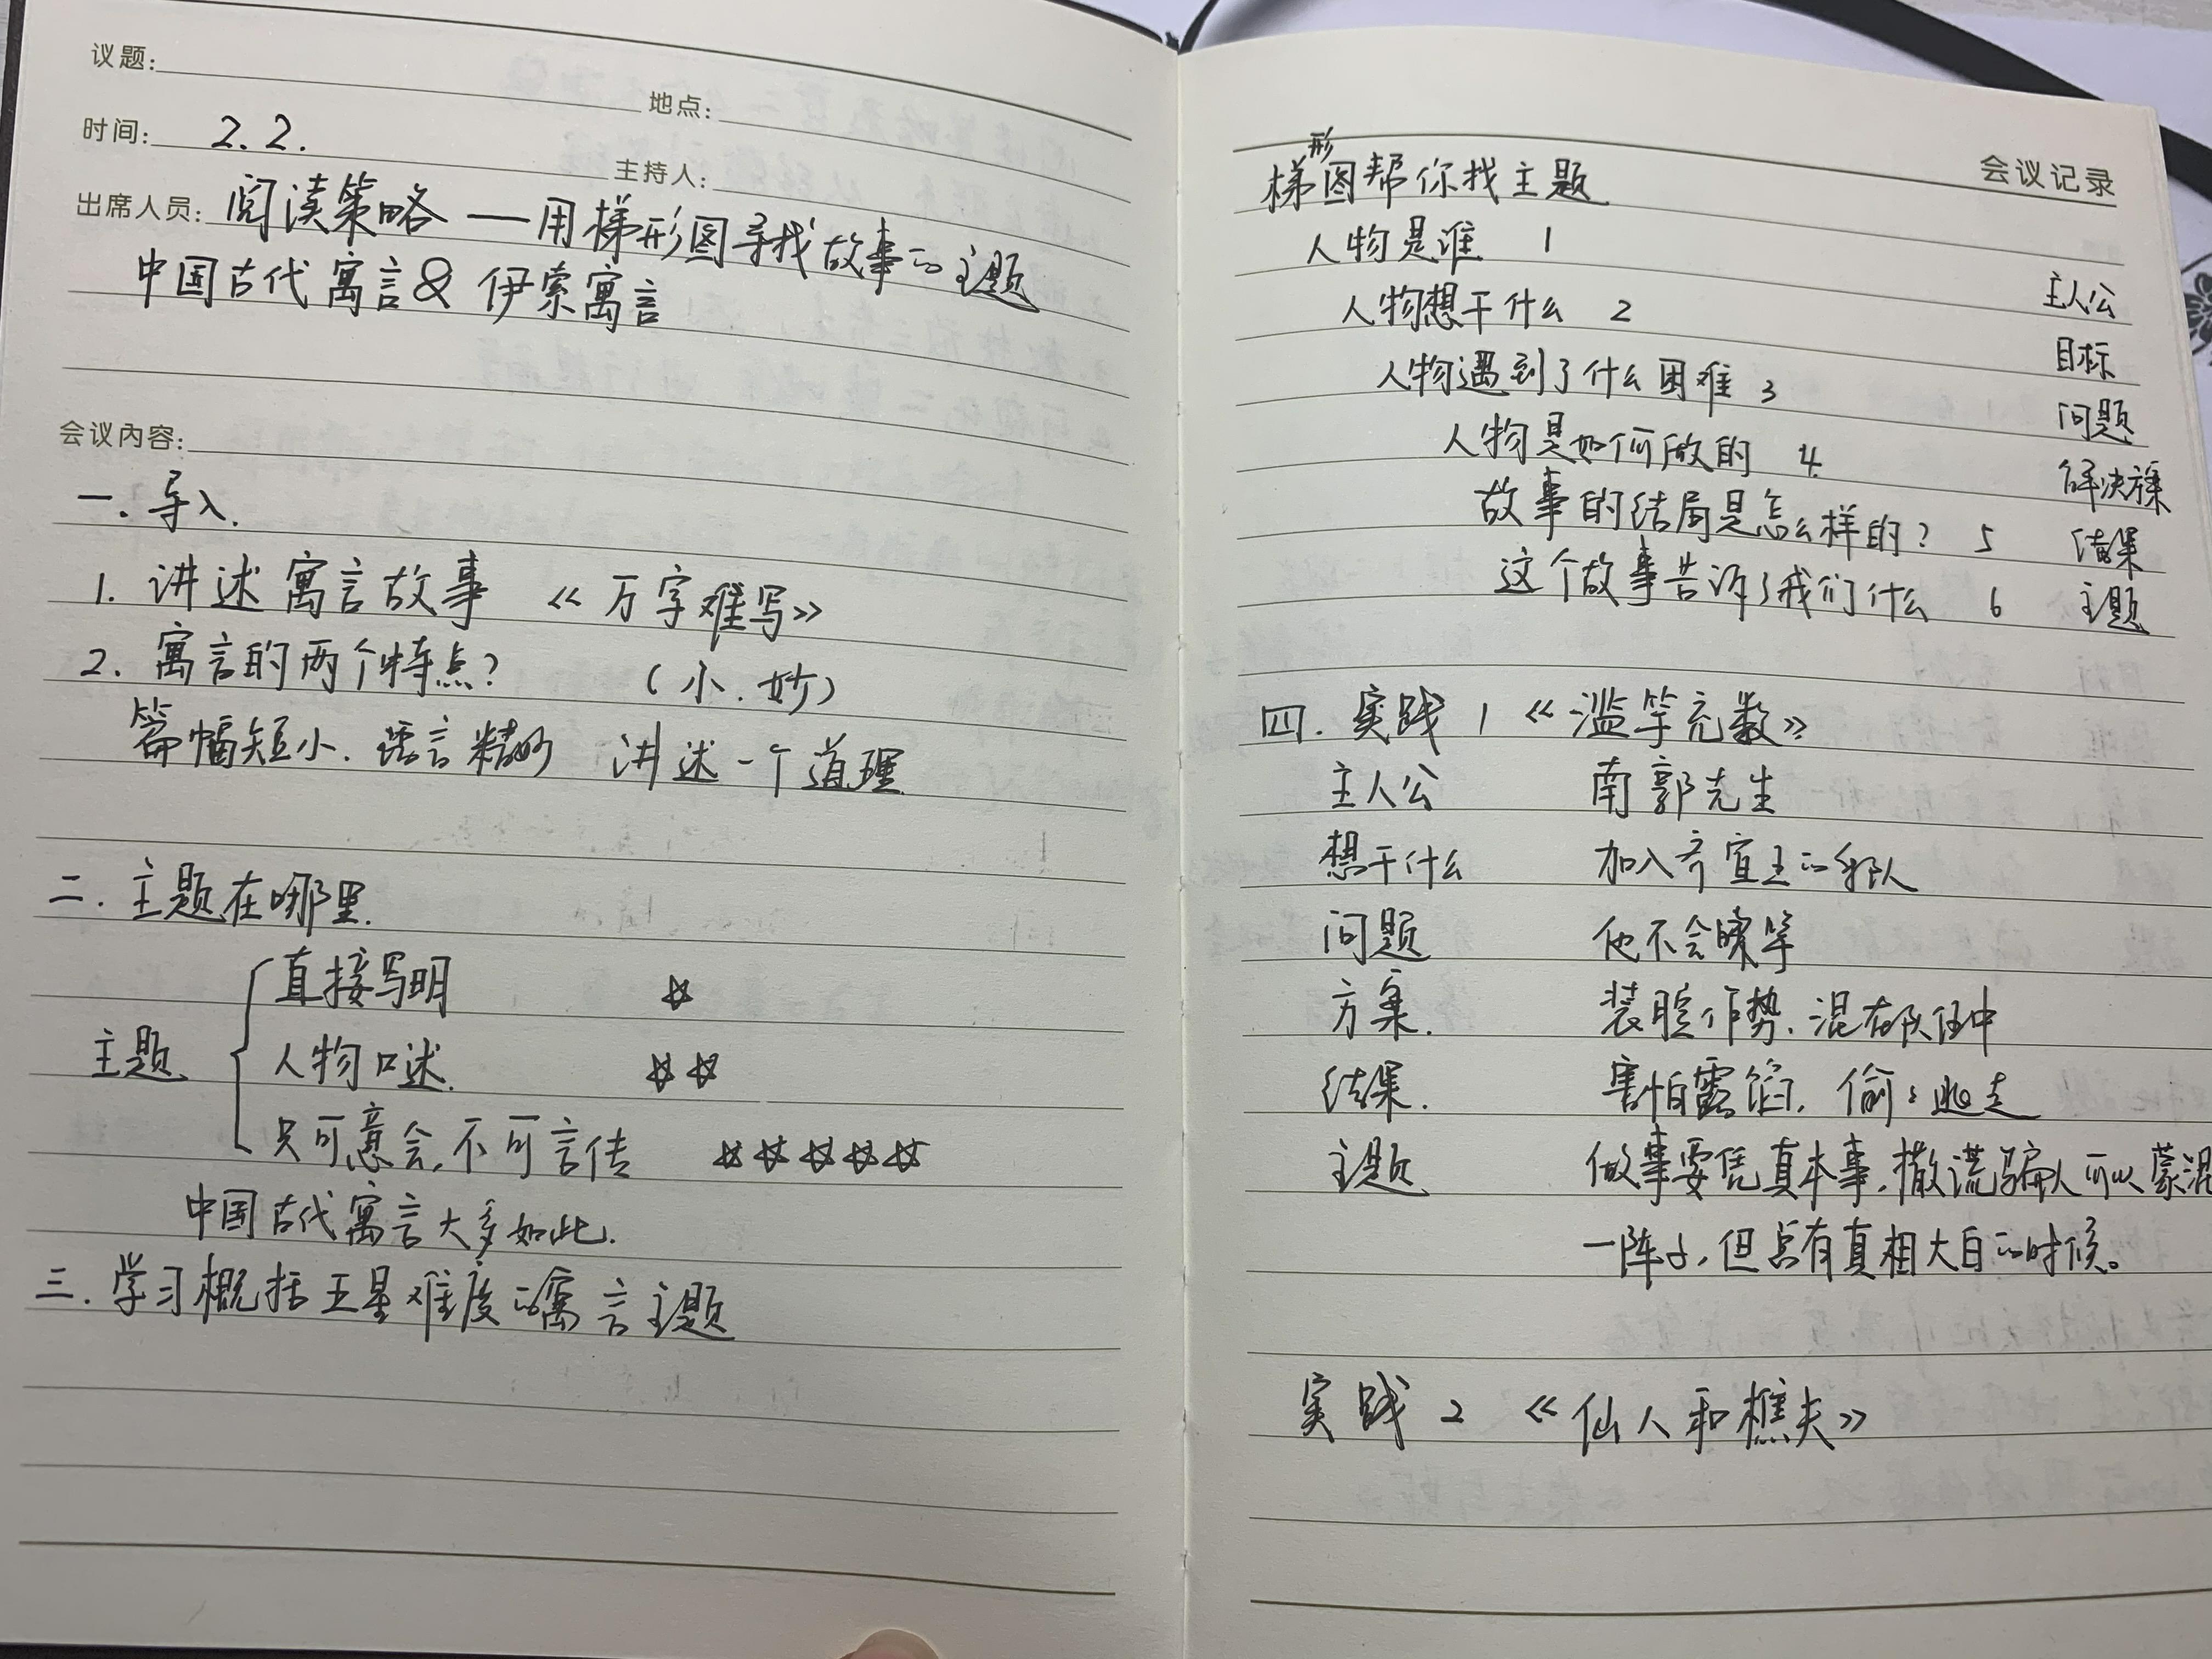 议题:
地点:
时间: 2.2.
主持人:
出席人员: 阅读策略 — 用梯形图寻找故事的主题
中国古代寓言 & 伊索寓言
会议内容:
一. 导入.
1. 讲述寓言故事 《万字难写》
2. 寓言的两个特点? (小. 妙)
篇幅短小. 语言精妙 讲述一个道理
二. 主题在哪里.
直接写明 ☆
主题 人物口述. ☆☆
只可意会, 不可言传 ☆☆☆☆☆
中国古代寓言大多如此.
三. 学习概括五星难度的寓言主题
会议记录
梯形图帮你找主题
人物是谁 1 主人公
人物想干什么 2 目标
人物遇到了什么困难 3 问题
人物是如何做的 4 解决方案
故事的结局是怎么样的? 5 结果
这个故事告诉了我们什么 6 主题
四. 实践 1 《滥竽充数》
主人公 南郭先生
想干什么 加入齐宣王的乐队
问题 他不会吹竽
方案. 装腔作势, 混在队伍中
结果. 害怕露馅, 偷偷逃走
主题 做事要凭真本事, 撒谎骗人可以蒙混
一阵子, 但总有真相大白的时候。
实践 2 《仙人和樵夫》